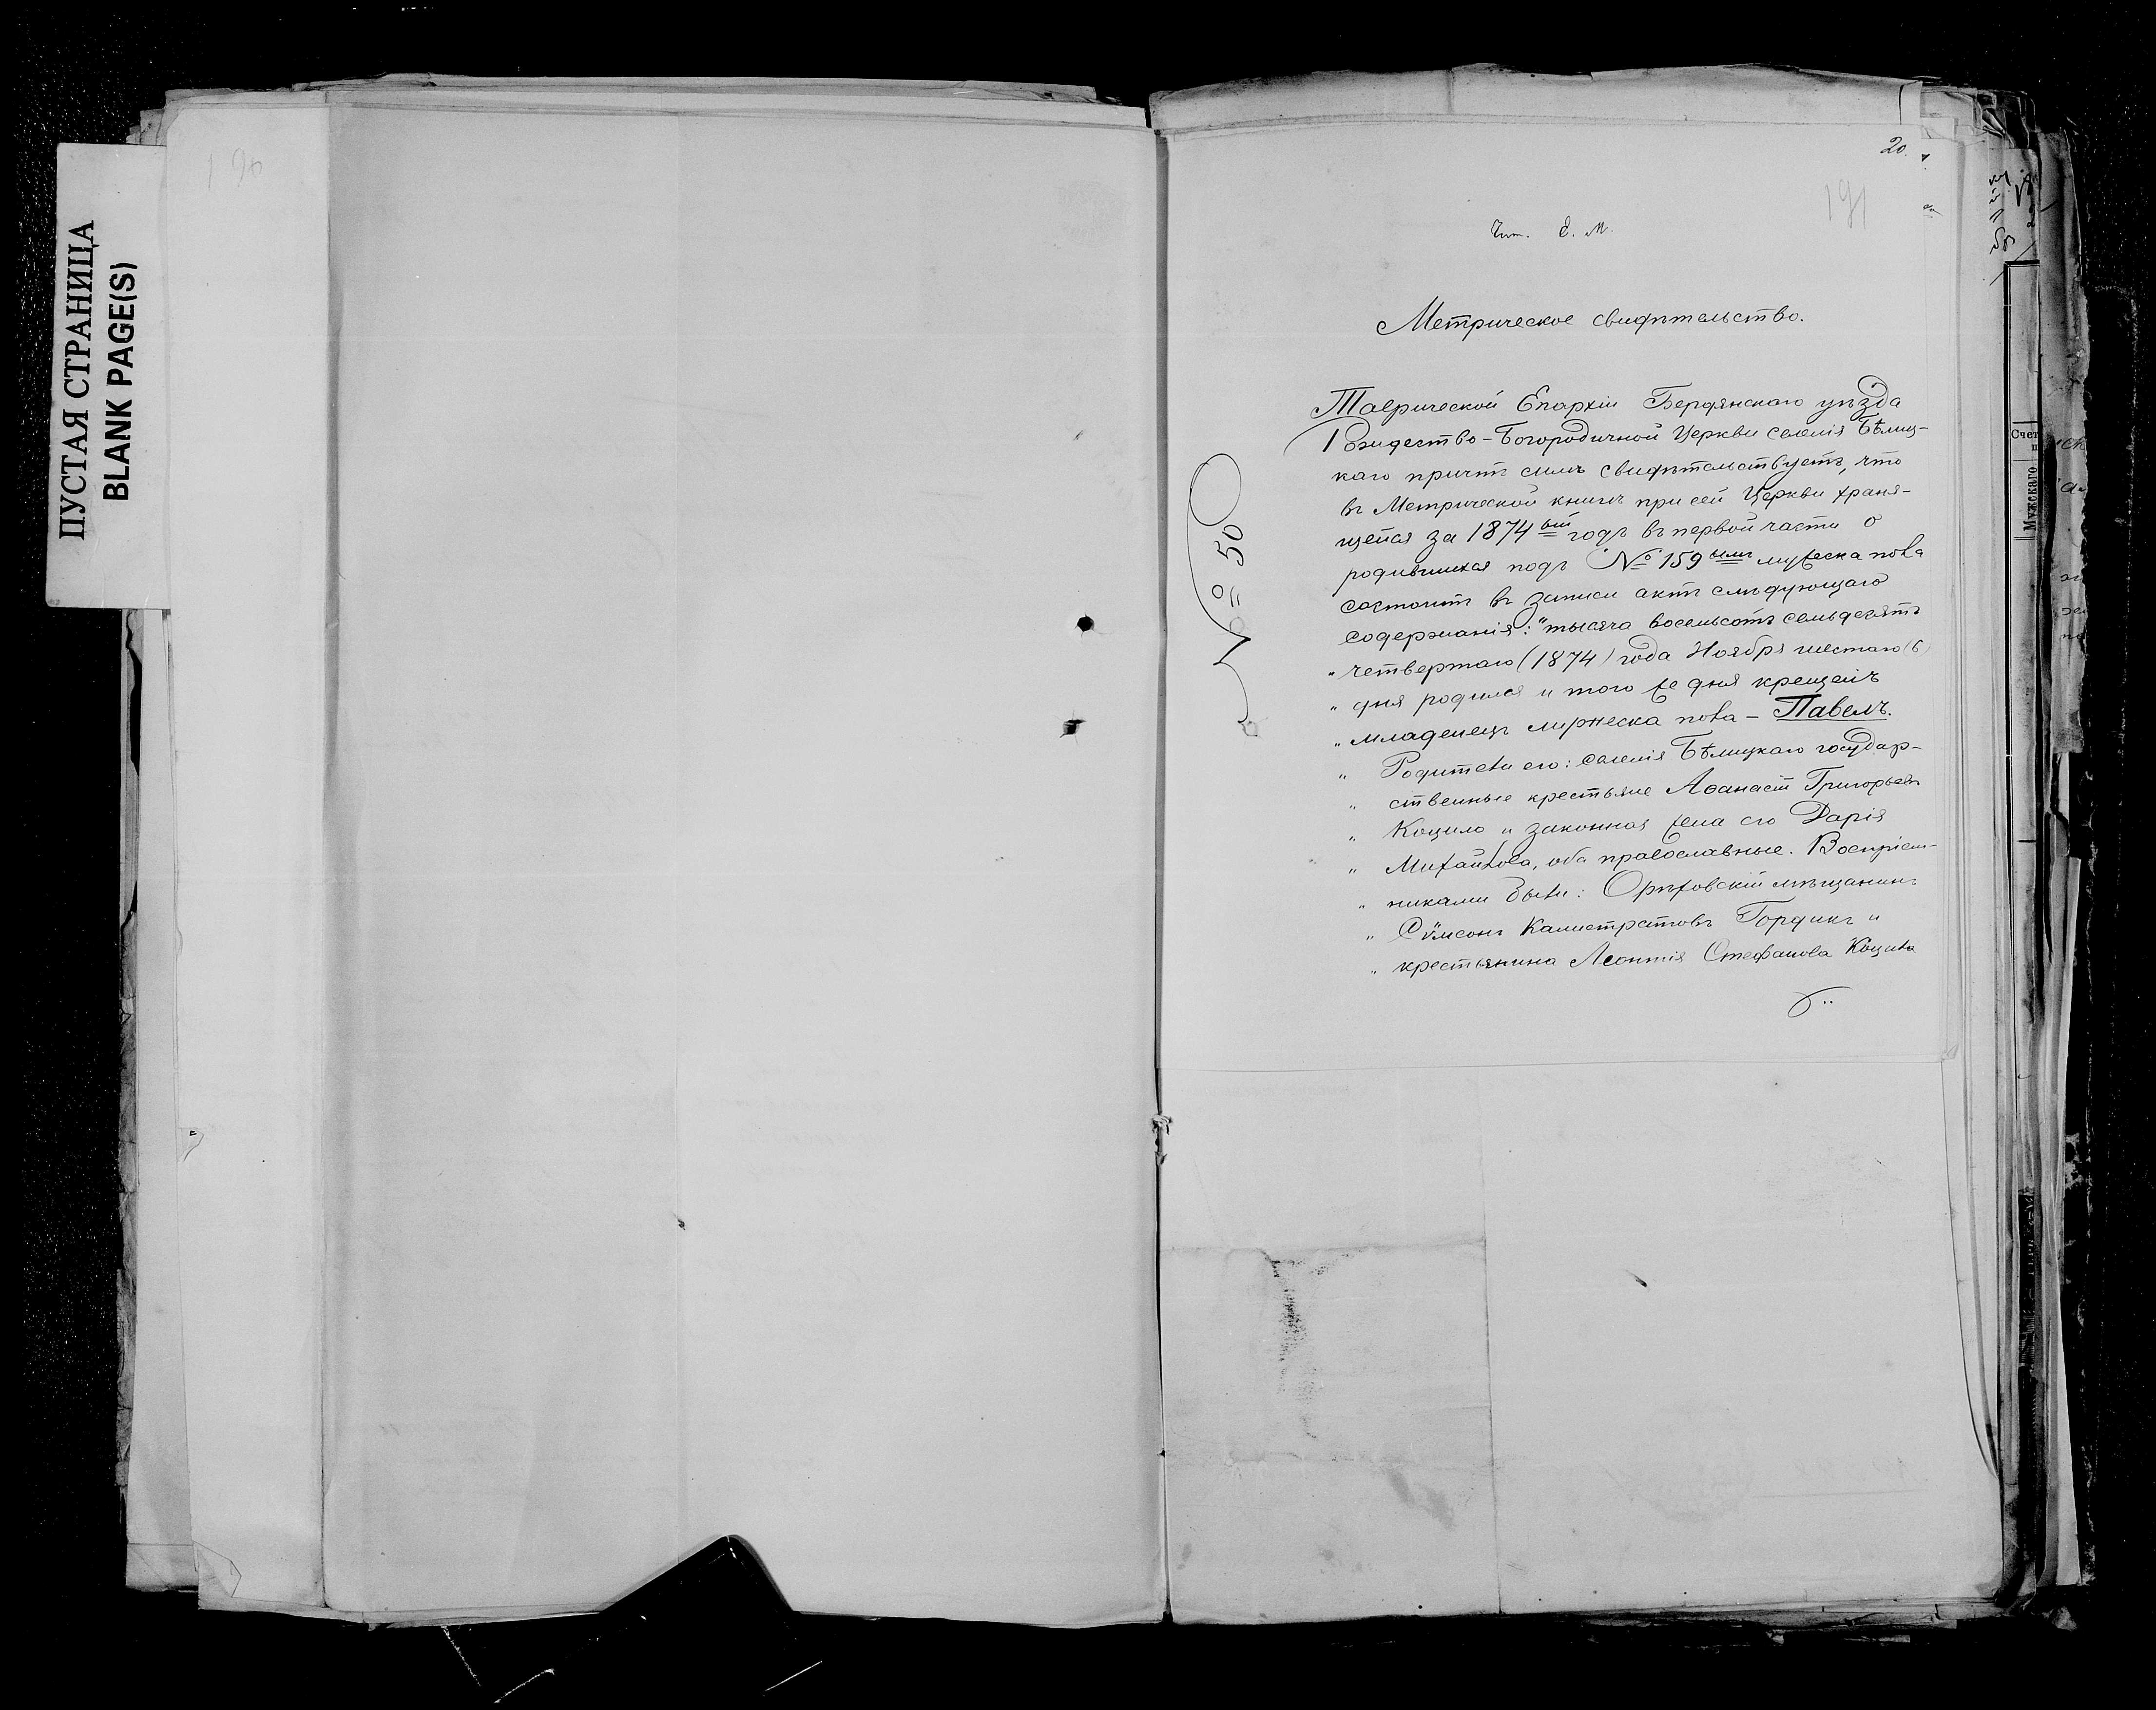 ПУСТАЯ СТРАНИЦА
BLANK PAGE(S)
190
20.
191
Чит. Е. М.
Метрическое свидѣтельство.
№ 50
Таврической Епархіи Бердянскаго уѣзда
Рождество-Богородичной Церкви селенія Бѣлиц-
каго причтъ симъ свидѣтельствуетъ, что
въ Метрической книгѣ при сей Церкви храня-
щейся за 1874ый годъ въ первой части о
родившихся подъ № 159ымъ мужеска пола
состоитъ въ записи актъ слѣдующаго
содержанія: "тысяча восемьсотъ семьдесятъ
" четвертаго (1874) года Ноября шестаго (6)
" дня родился и того же дня крещенъ
" младенецъ мужеска пола – Павелъ.
" Родители его: селенія Бѣлицкаго государ-
" ственные крестьяне Аѳанасій Григорьевъ
" Коцило и законная жена его Дарія
" Михайлова, оба православные. Воспріем-
" никами были: Орѣховскій мѣщанинъ
" Сѵмсонъ Калистратовъ Гордикъ и
" крестьянина Леонтія Стефанова Коцила
Счет
Мужскаго